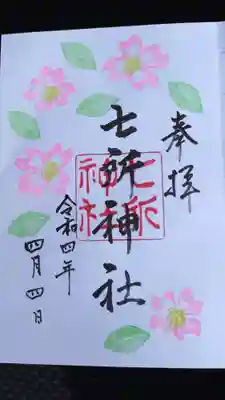 奉拝
七所神社
七所
神社
令和四年
四月四日